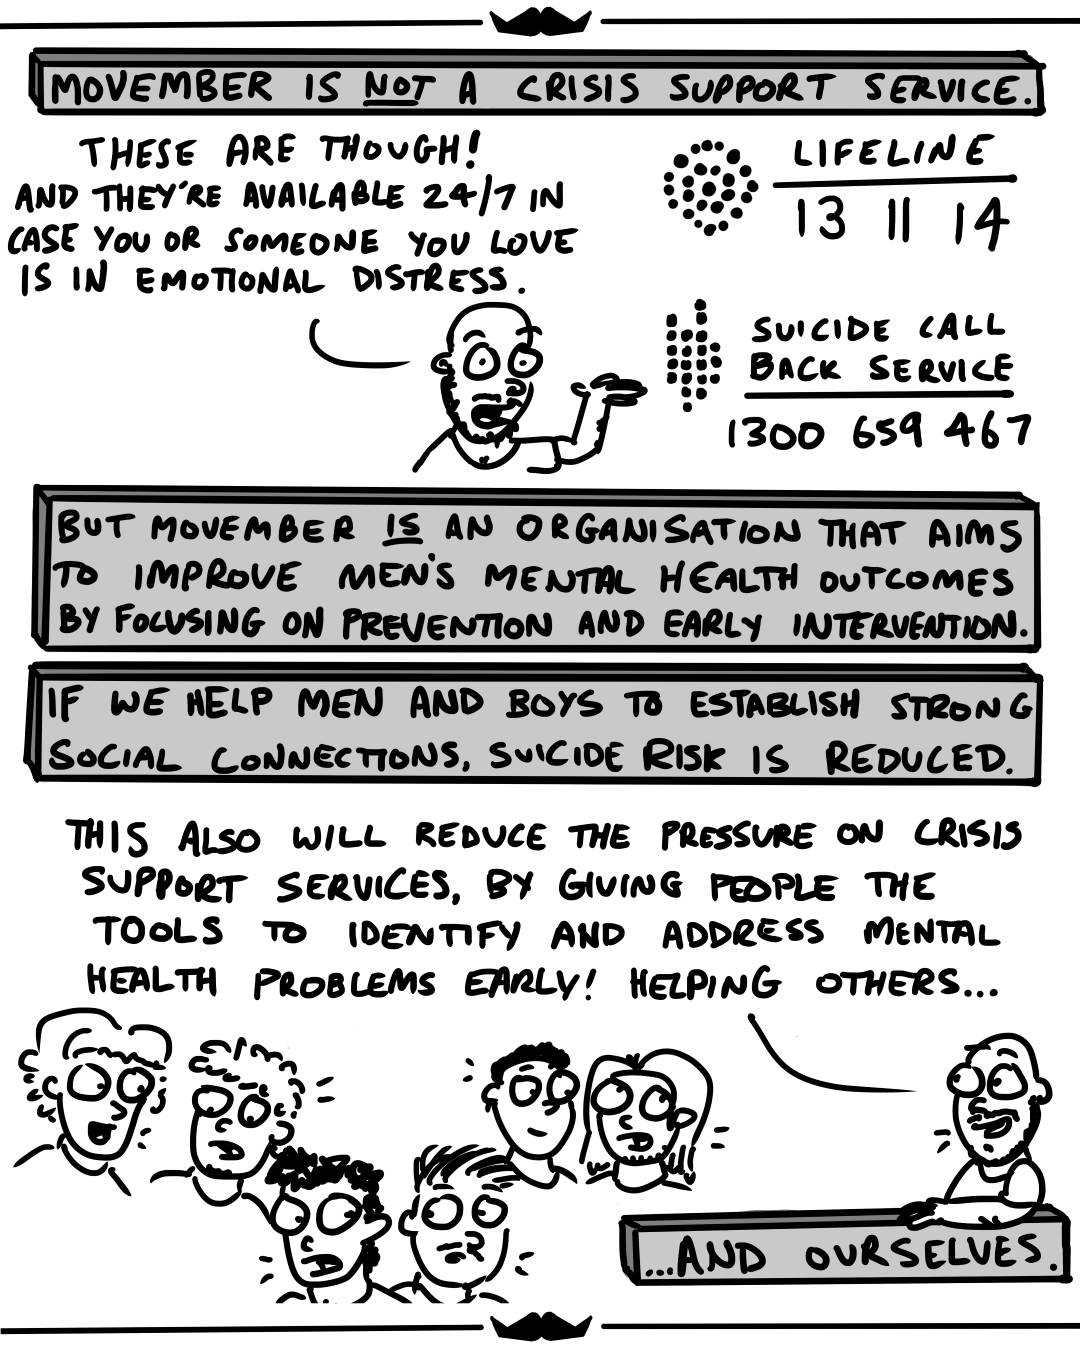 MOVEMBER IS NOT A CRISIS SUPPORT SERVICE.
THESE ARE THOUGH!
AND THEY'RE AVAILABLE 24/7 IN
CASE YOU OR SOMEONE YOU LOVE
IS IN EMOTIONAL DISTRESS.
LIFELINE
13 11 14
SUICIDE CALL
BACK SERVICE
1300 659 467
BUT MOVEMBER IS AN ORGANISATION THAT AIMS
TO IMPROVE MEN'S MENTAL HEALTH OUTCOMES
BY FOCUSING ON PREVENTION AND EARLY INTERVENTION.
IF WE HELP MEN AND BOYS TO ESTABLISH STRONG
SOCIAL CONNECTIONS, SUICIDE RISK IS REDUCED.
THIS ALSO WILL REDUCE THE PRESSURE ON CRISIS
SUPPORT SERVICES, BY GIVING PEOPLE THE
TOOLS TO IDENTIFY AND ADDRESS MENTAL
HEALTH PROBLEMS EARLY! HELPING OTHERS...
...AND OURSELVES.